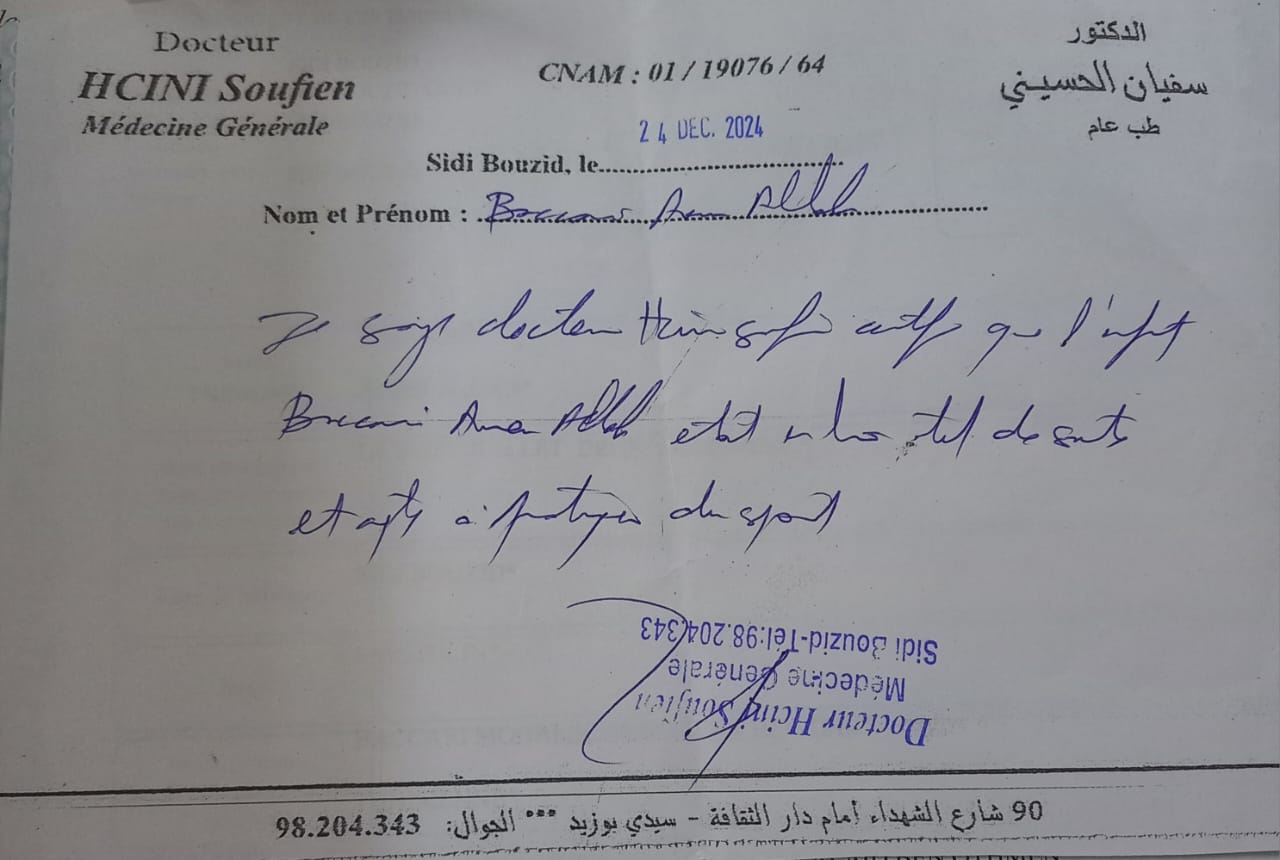 Docteur
HCINI Soufien
Médecine Générale
CNAM : 01 / 19076 / 64
الدكتور
سفيان الحسيني
طب عام
24 DEC. 2024
Sidi Bouzid, le
Nom et Prénom : Baccari Aman Allah
Je soigé docteur Hcini Soufien certifie que l'enfant
Baccari Aman Allah etat en bon etat de sante
et apte à pratiquer du sport
Docteur Hcini Soufien
Médecine Générale
Sidi Bouzid-Tél:98.204.343
90 شارع الشهداء أمام دار الثقافة - سيدي بوزيد *** الجوال: 98.204.343